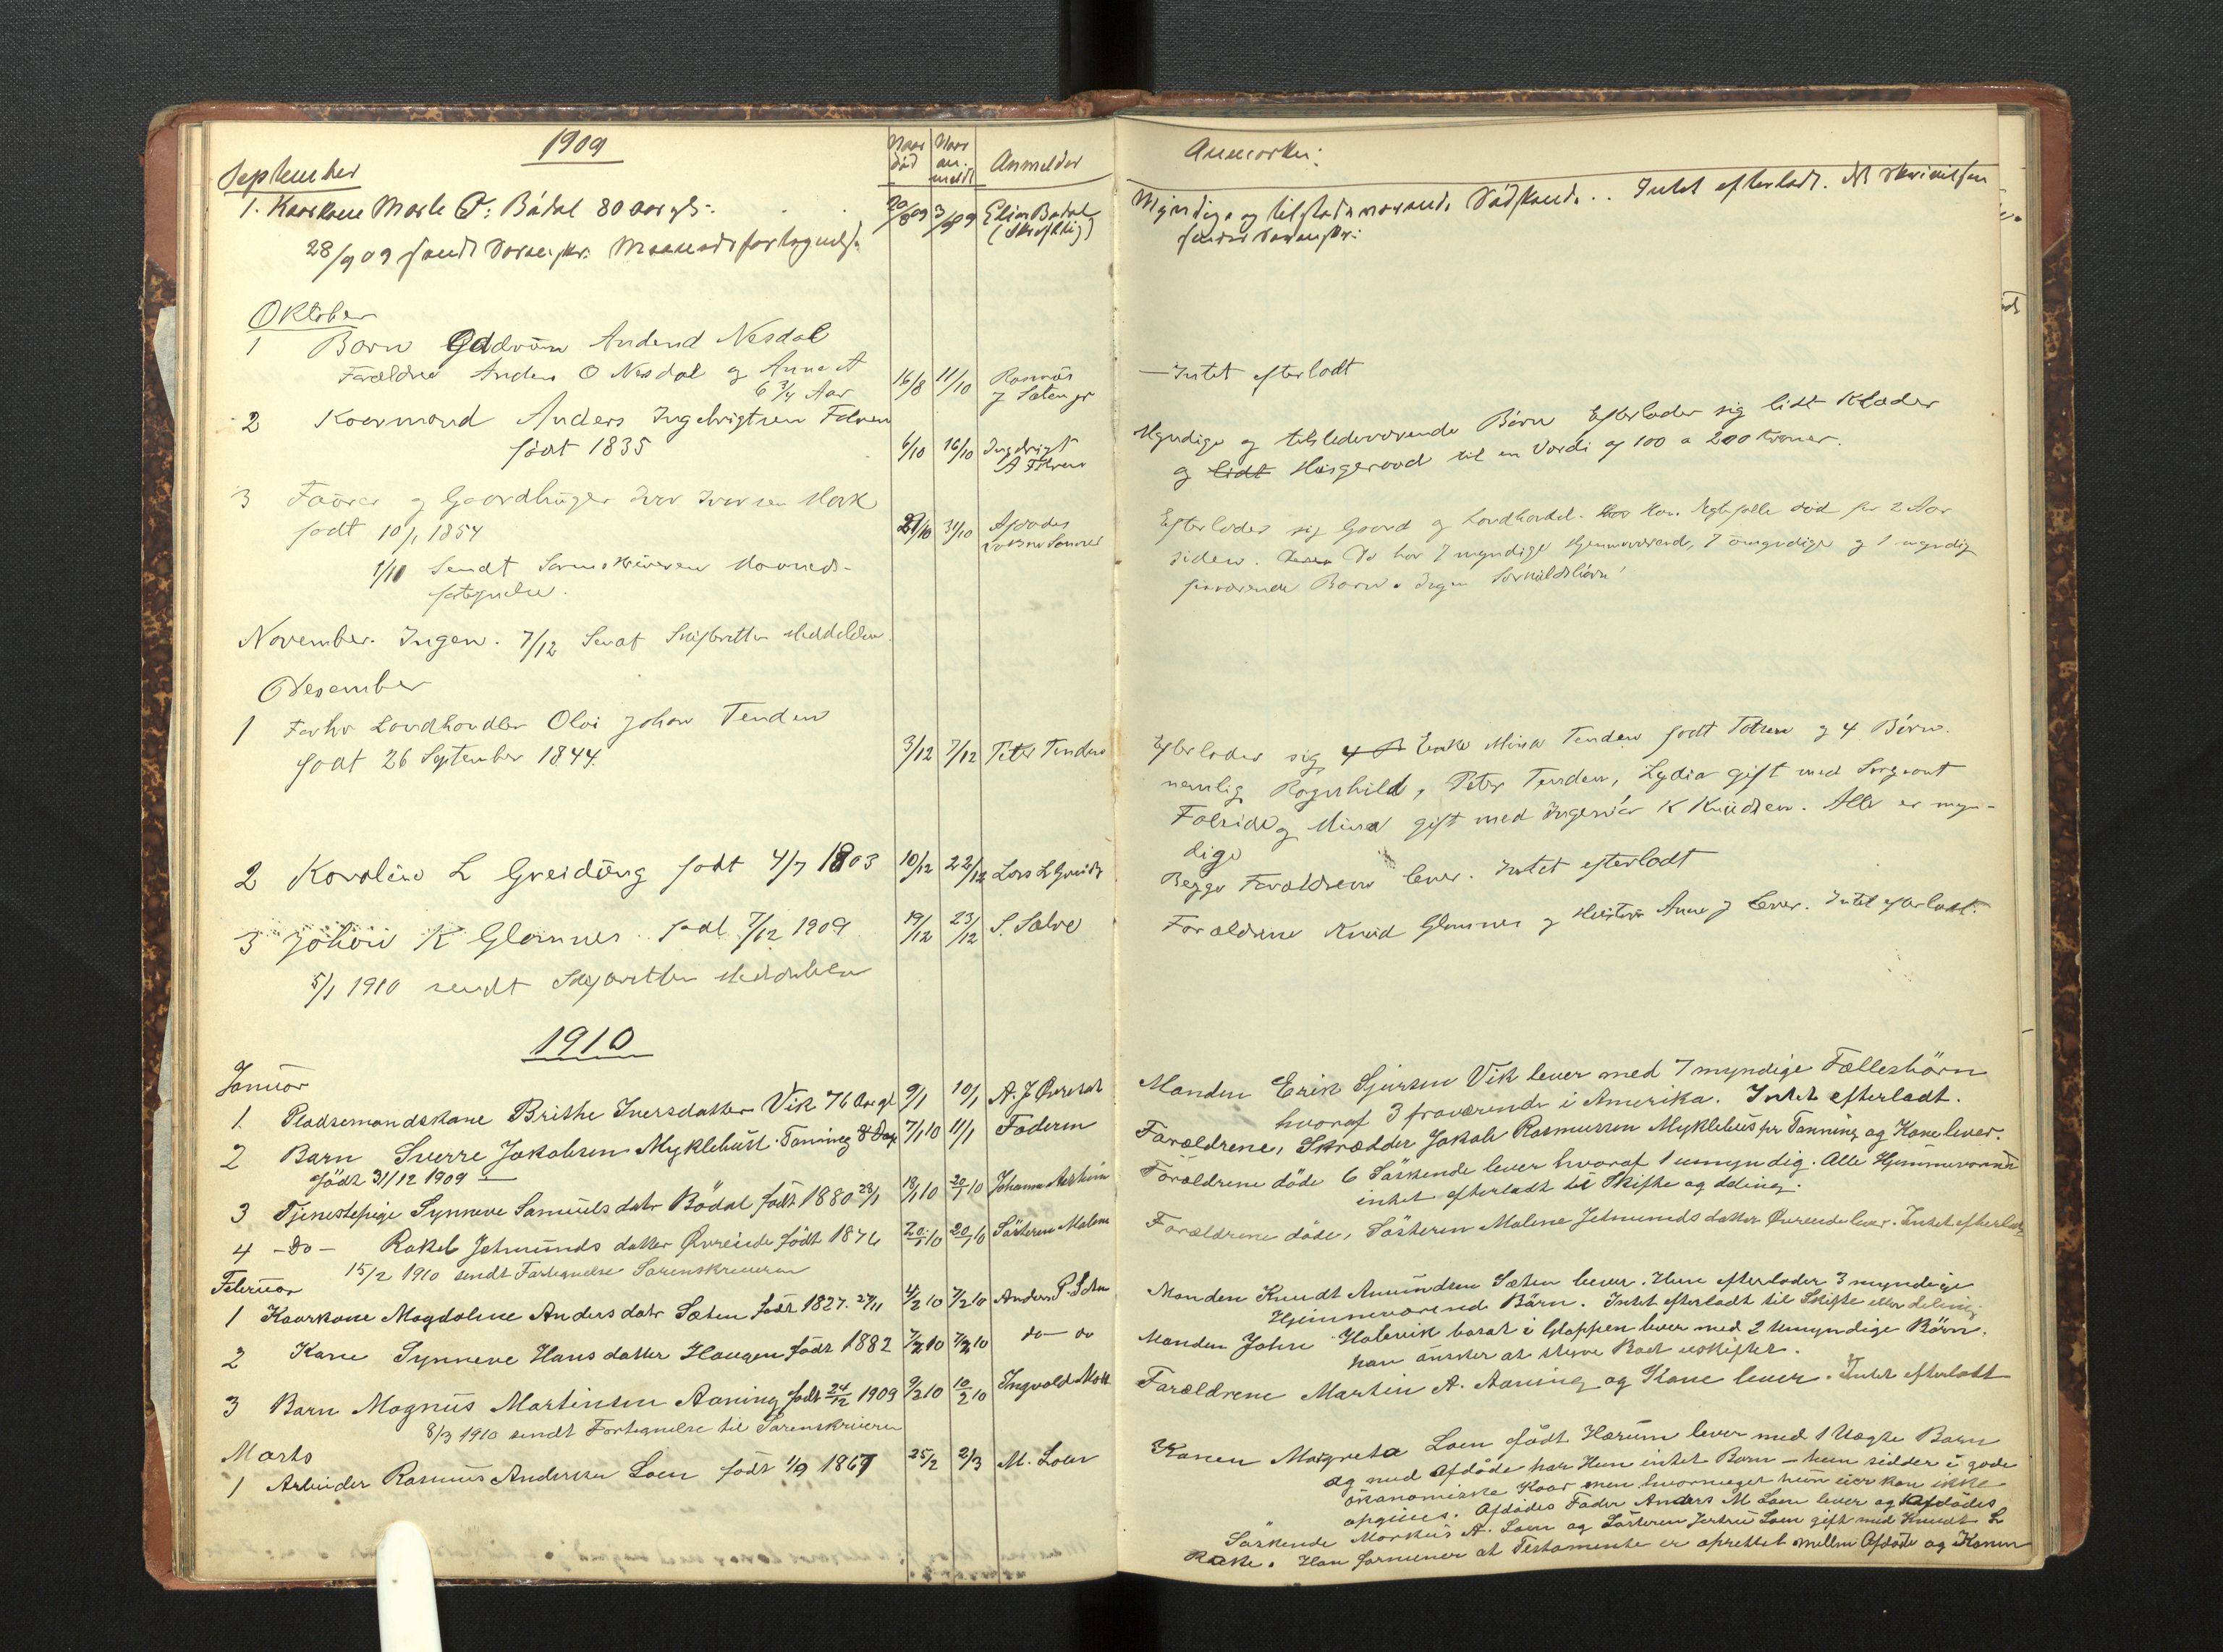 1909
September
Naar død
Naar anmeldt
Anmelder
Anmærkn:
1. Kaarkone Marte P: Bødal 80 aar gl:
20/8 09
3/9 09
Elias Bødal
(Skriftlig)
Myndige og tilstedeværende Sødskende.. Intet efterladt.
28/9 09 sendt Sorenskr: Maanedsfortegnelse
Oktober
1 Barn Gudrun Andersd Nesdal
Forældre Anders O Nesdal og Anne A
6 3/4 Aar
16/8
11/10
Rasmus
J Sæten jr
— Intet efterladt
2 Kaarmand Anders Ingebrigtsen Folven
født 1835
6/10
16/10
Ingebrigt
A Folven
Myndige og tilstedeværende Børn Efterlader sig lidt Klæder
og lidt Husgeraad til en Værdi af 100 a 200 Kroner.
3 og Gaardbruger Iver Iversen Mork
født 10/1 1854
29/10
31/10
Afdødes
Sønner
Efterlader sig Gaard og Landhandel. Han Ægtefælle død for 2 Aar
siden. De har 7 myndige Hjemmeværende, 7 umyndige og 1 myndig
fraværende Børn. Ingen Særkuldsbørn
1/11 Sendt Sorenskriveren Maaneds-
fortegnelse.
November. Ingen. 7/12 Sendt Skifteretten Meddelelse.
Desember
1 Forhv Landhandler Olai Johan Tenden
født 26 September 1844.
3/12
7/12
Peter Tenden
Efterlader sig Enke Mina Tenden født og 4 Børn.
nemlig Ragnhild, Peter Tenden, Lydia gift med Sergeant
og Mina gift med Ingeniør K Knudsen. Alle er myn-
dige
2 Karoline L Greidung født 4/7 1803
10/12
22/12
Lars L Greidu
Begge Forældrene lever. Intet efterladt
3 Johan K Glomnes født 7/12 1909
19/12
23/12
S. Sælve
Forældrene Knud Glomnes og Hustru Anne J lever. Intet efterladt.
5/1 1910 sendt Skifteretten Meddelelse
1910
Januar
1. Pladsemandskone Brithe Iversdatter Vik 76 Aar gl
9/1
10/1
A. J Øvreeide
Manden Erik Sjursen Vik lever med 7 myndige Fællesbörn
hvoraf 3 fraværende i Amerika. Intet efterladt.
2 Barn Sverre Jakobsen Myklebust Tanning 8 Dage
födt 31/12 1909
7/1 10
11/1
Faderen
Forældrene, Skrædder Jakob Rasmussen Myklebust pr Tanning og Kone lever.
3 Tjenestepige Synneve Samuelsdatr Bödal födt 1880 23/1
18/1 10
20/1 10
Johannes Aarheim
Forældrene döde 6 Söskende lever hvoraf 1 umyndig. Alle Hjemmeværende
intet efterladt til Skifte og deling.
4 -Do- Rakel Jetmunds datter Øvreeide födt 1876
20/1 10
20/1 10
Søsteren Malene
Forældrene döde, Søsteren Malene Jetmunds datter Øvreeide lever. Intet efterladt
15/2 1910 sendt Fortegnelse Sorenskriveren
Februar
1 Kaarkone Magdalene Andersdatr Sæten födt 1827. 27/11
4/2 10
7/2 10
Anders P. Sæten
Manden Knudt Amundsen Sæten lever. Hun efterlader 3 myndige
Hjemmeværende Börn. Intet efterladt til Skifte eller deling
2 Kone Synneve Hans datter Haugen födt 1882
7/2 10
7/2 10
do — do
Manden John Halvik bosat i Gloppen lever med 2 Umyndige Börn.
han önsker at styre Boet uskiftet.
3 Barn Magnus Martinsen Aaning födt 24/12 1909
9/2 10
10/2 10
Ingvald
Forældrene Martin A. Aaning og Kone lever. Intet efterladt
8/3 1910 sendt Fortegnelse til Sorenskriveren
Marts
1 Arbeider Rasmus Andersen Loen födt 1/9 1867
25/2
2/3
M. Loen
Konen Margreta Loen född Hærum lever med 1 Uægte Barn
og med Afdöde har Hun intet Barn — hun sidder i gode
ökonomiske Kaar men hvormeget hun eier kan ikke
opgives. Afdødes Fader Anders M Loen lever og Afdødes
Söskende Markus A. Loen og Søsteren Jertru Loen gift med Knudt L
Rake. Han formener at Testamente er oprettet mellem Afdøde og Konen